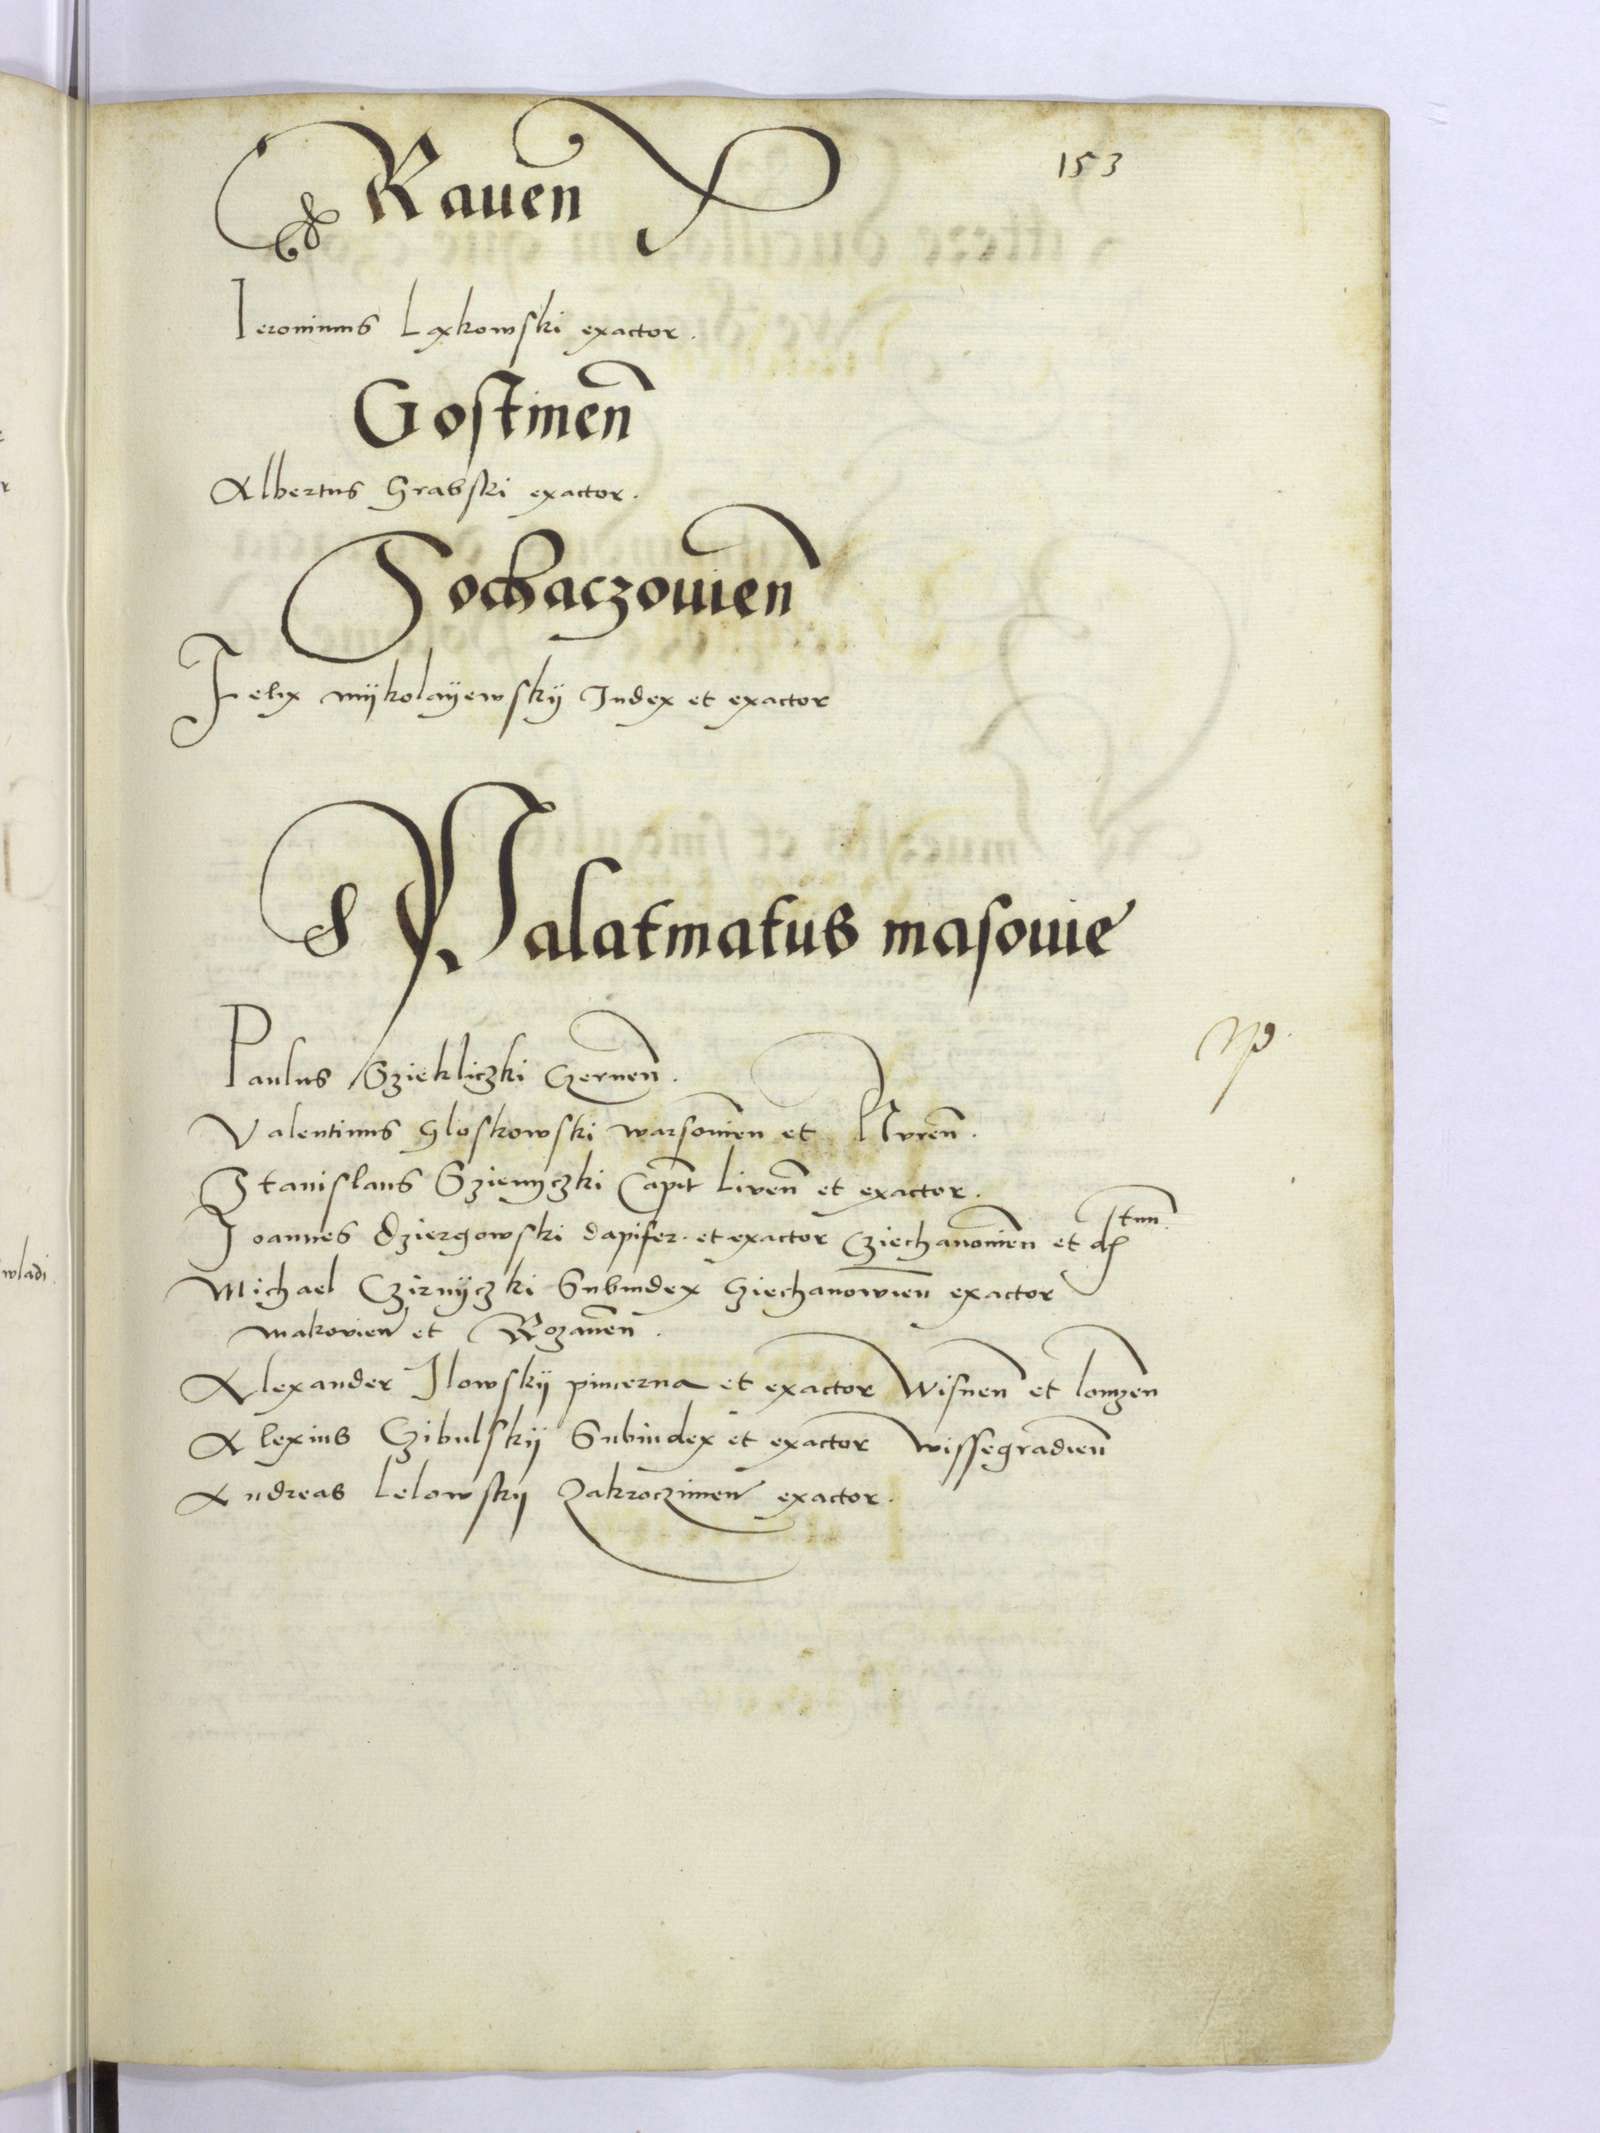 153
Rauen
Ieronimus Laxkowski exactor.
Gostinen
Albertus Grabski exactor.
Sochaczouien
Felix mÿkolaÿewskÿ Iudex et exactor
Palatinatus masouie
Paulus Sziekliczki Czernen.
Valentinus Gloskowski warsouien et Nuren.
Stanislaus Szieniczki Capit Liven et exactor.
Ioannes Dziergowski dapifer et exactor Cziechanouien et
Michael Czirnÿczki Subiudex Cziechanowien exactor
makovien et Rozanen.
Alexander Ilowskÿ pincerna et exactor Wisnen et Lomzen
Alexius Czibulskÿ Subiudex et exactor Wissegradien
Andreas Lelowskÿ Zakroczimen exactor.
wladi